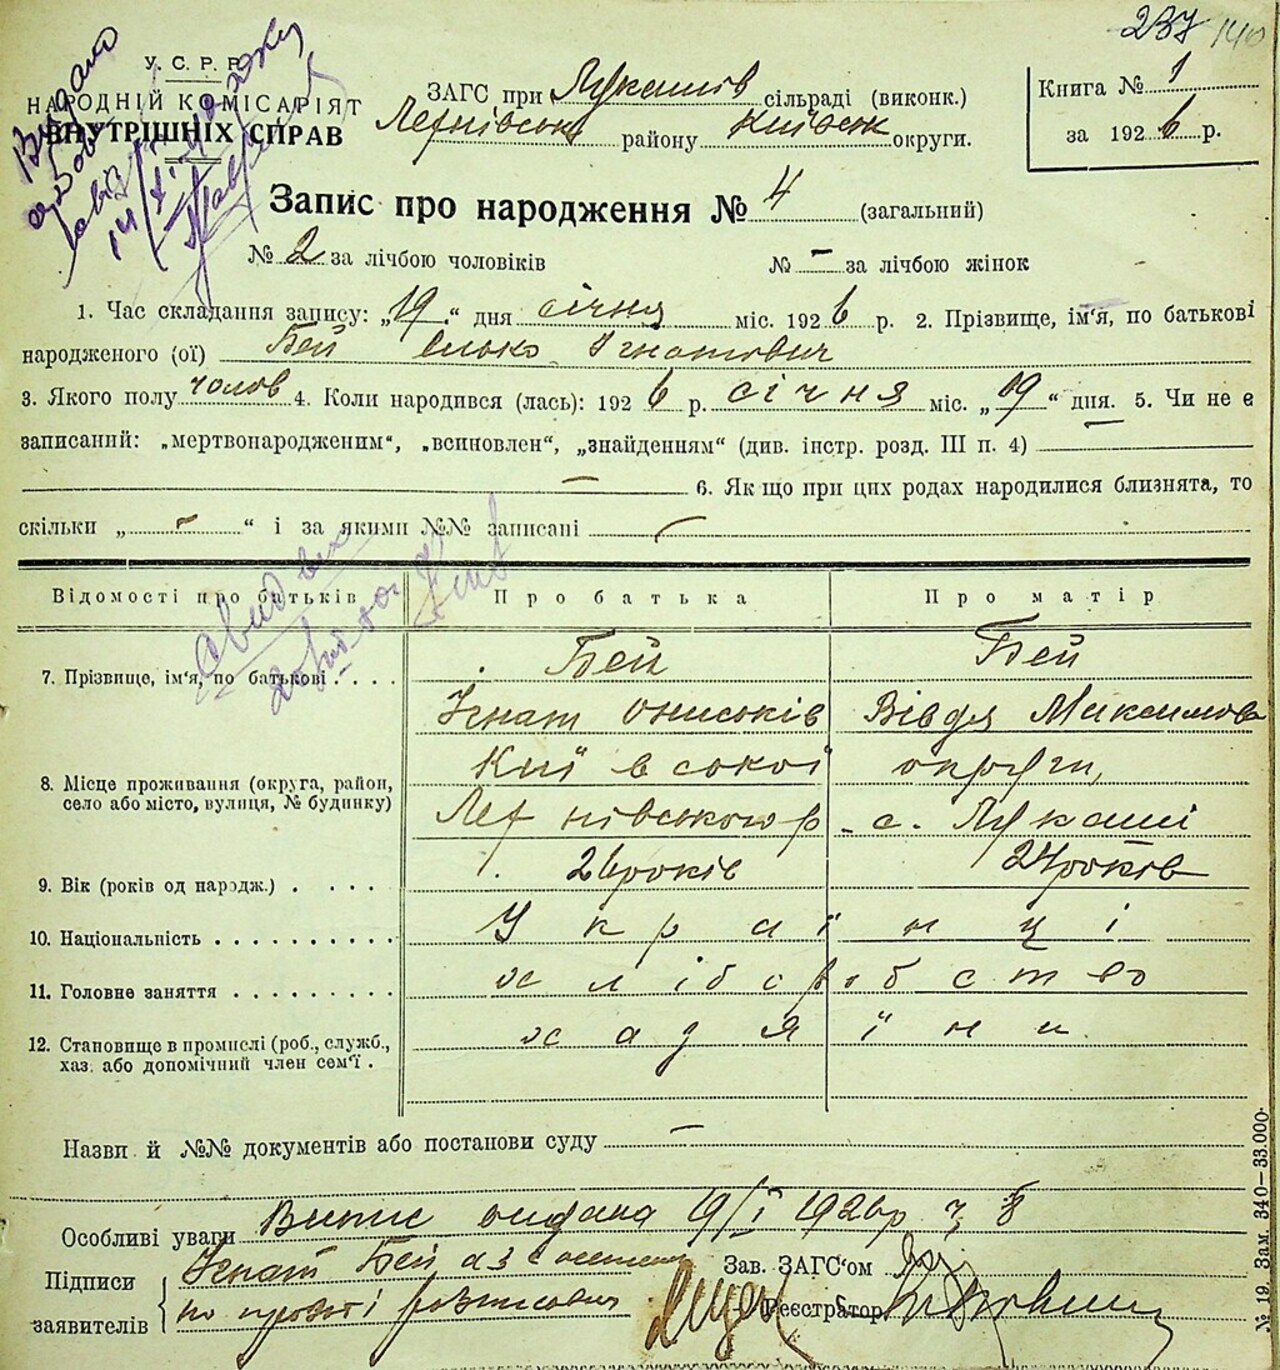 237 140
У. С. Р. Р.
НАРОДНІЙ КОМІСАРІЯТ
ВНУТРІШНІХ СПРАВ
ЗАГС при Лукашів сільраді (виконк.)
району Київськ округи.
Книга № 1
за 1926 р.
Запис про народження № 4 (загальний)
№ 2 за лічбою чоловіків № - за лічбою жінок
1. Час складання запису: „19“ дня січня міс. 1926 р. 2. Прізвище, ім'я, по батькові
народженого (ої) Бей Ілько Ігнатович
3. Якого полу чолов 4. Коли народився (лась): 1926 р. січня міс. „19“ дня. 5. Чи не є
записаний: „мертвонародженим“, „всиновлен“, „знайденням“ (див. інстр. розд. III п. 4)
— 6. Як що при цих родах народилися близнята, то
скільки „ - “ і за якими №№ записані —
Відомості про батьків Про батька Про матір
7. Прізвище, ім'я, по батькові . . . . Бей Бей
Ігнат Ониськів Вівдя Максимова
8. Місце проживання (округа, район, село або місто, вулиця, № будинку) Київської округи,
с. Лукаші
9. Вік (років од народж.) . . . . 26 років 24 років
10. Національність . . . . . . . . . . Українці
11. Головне заняття . . . . . . . . . хліборобство
12. Становище в промислі (роб., служб.,
хаз. або допомічний член сем'ї . хадяїни
Назви й №№ документів або постанови суду —
Особливі уваги Випис видана 19/I 1926 р ч 8
Підписи Ігнат Бей а за
заявителів по розписався
Зав. ЗАГС'ом
Реєстратор
№ 19 Зам. 340—33.000.